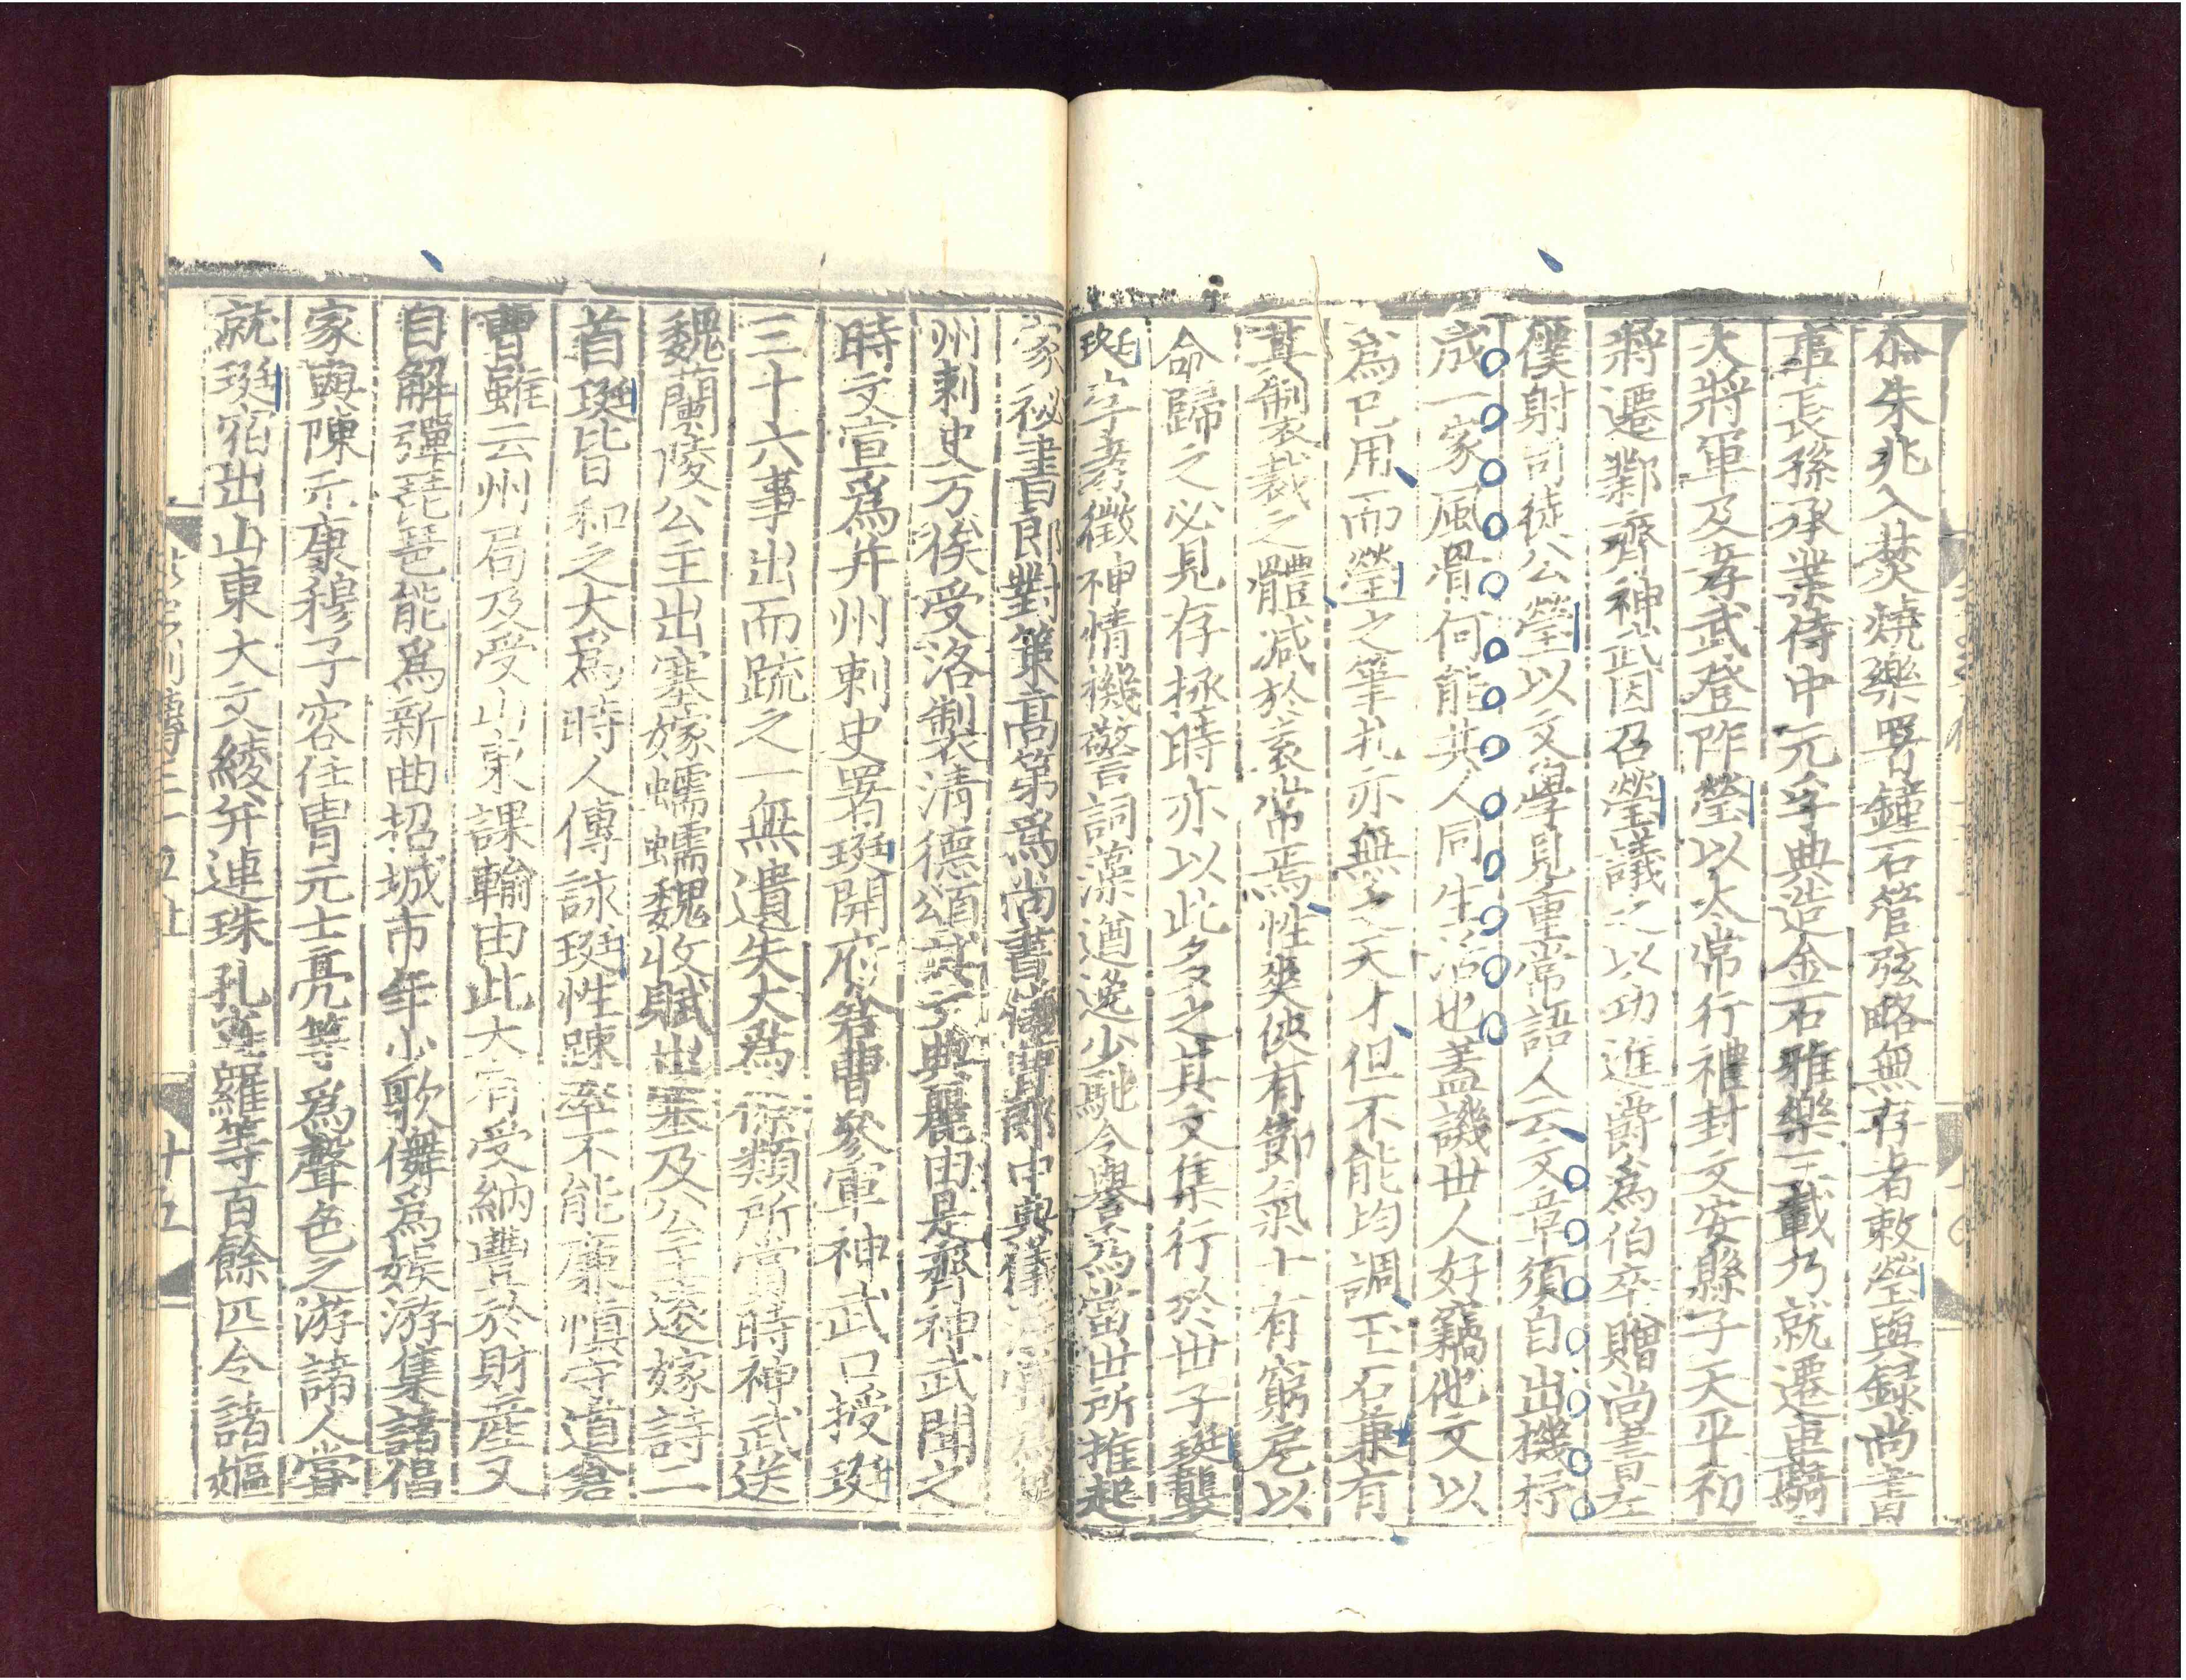 尒朱兆入焚燒樂署鐘石管弦略無存者敕瑩與錄尚書
事長孫承業侍中元孚典造金石雅樂三載乃就遷車騎
大將軍及孝武登阼瑩以太常行禮封文安縣子天平初
將遷鄴齊神武因召瑩議之以功進爵爲伯卒贈尚書左
僕射司徒公瑩以文學見重常語人云文章須自出機杼
成一家風骨何能共人同生活也蓋譏世人好竊他文以
爲已用而瑩之筆札亦無乏天才但不能均調玉石兼有
其制裁之體减於袁常焉性爽俠有節氣士有窮厄以
命歸之必見存拯時亦以此多之其文集行於世子珽襲
珽字孝徵神情機警詞藻遒逸少馳令譽爲當世所推起
家祕書郎對策高第爲尚書儀曹郎中典儀
州刺史万俟受洛制清德頌其文典麗由是齊神武聞之
時文宣爲并州刺史署珽開府倉曹參軍神武口授珽
三十六事出而疏之一無遺失大爲僚類所賞時神武送
魏蘭陵公主出塞嫁蠕蠕魏收賦出塞及公主遠嫁詩二
首珽皆和之大爲時人傳詠珽性踈率不能廉慎守道倉
曹雖云州局乃受山東課輸由此大有受納豐於財產又
自解彈琵琶能爲新曲招城市年少歌儛爲娭游集諸倡
家與陳元康穆子容任胄元士亮等爲聲色之游諸人嘗
就珽宿出山東大文綾并連珠孔雀羅等百餘匹令諸嫗
列傳三十五
十五